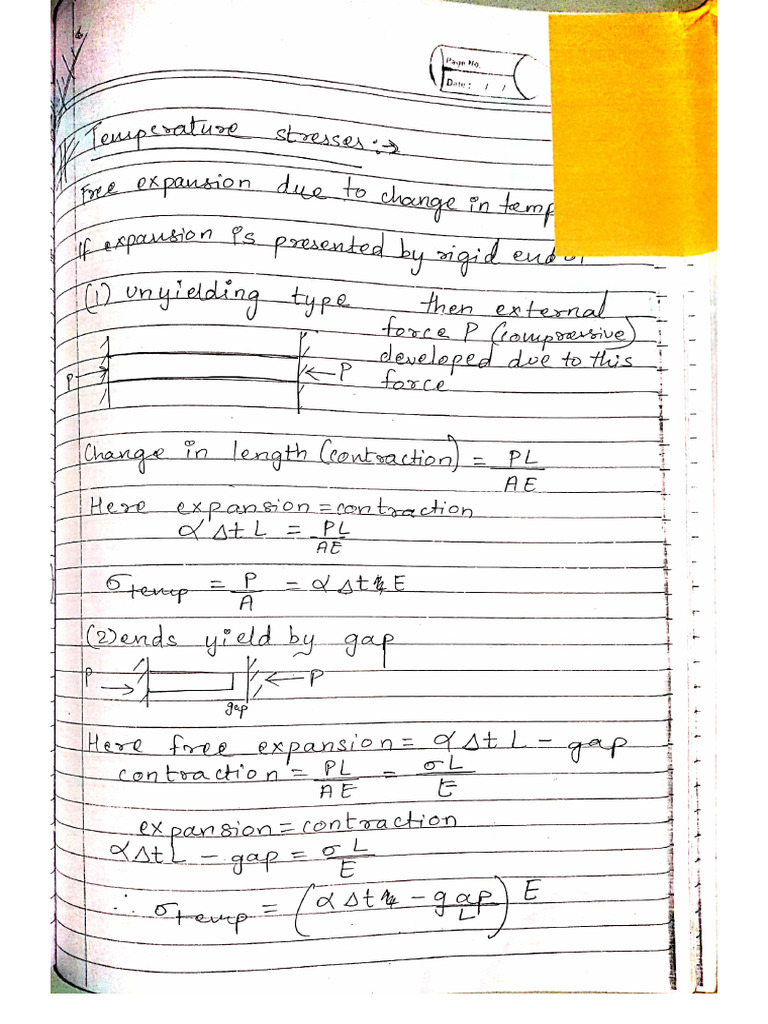 Page No.
Date: / /
Temperature stresses:→
Free expansion due to change in temp
If expansion is presented by rigid ends.
(1) unyielding type then external
force P (compressive)
developed due to this
force
P ← P
Change in length (contraction) = PL/AE
Here expansion = contraction
α Δt L = PL/AE
σtemp = P/A = α Δt E
(2) ends yield by gap
P → ← P
gap
Here free expansion = α Δt L - gap
contraction = PL/AE = σL/E
expansion = contraction
α Δt L - gap = σL/E
∴ σtemp = (α Δt - gap/L) E